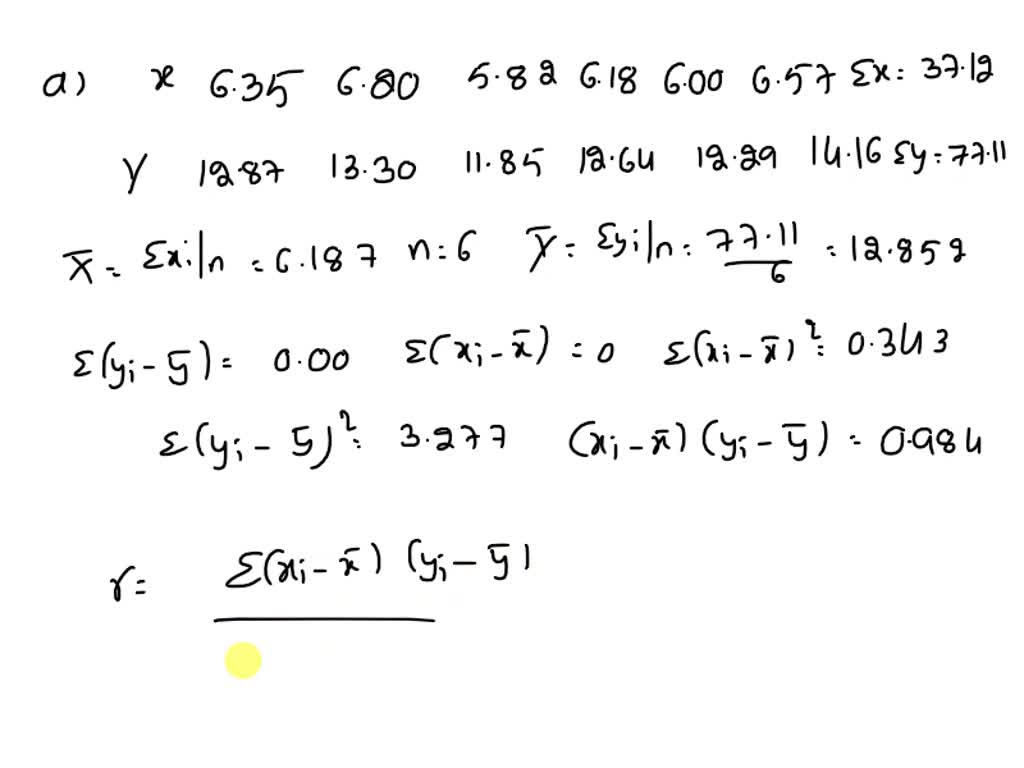 a) x 6.35 6.20 5.82 6.18 6.00 6.57 Σx = 37.12
Y 12.87 13.30 11.85 12.64 12.29 14.16 Σy = 77.11
x̄ = Σxi/n = 6.187 n = 6 Ȳ = Σyi/n = 77.11/6 = 12.852
Σ(yi - ȳ) = 0.00 Σ(xi - x̄) = 0 Σ(xi - x̄)² = 0.343
Σ(yi - ȳ)² = 3.277 (xi - x̄)(yi - ȳ) = 0.984
r = Σ(xi - x̄)(yi - ȳ)